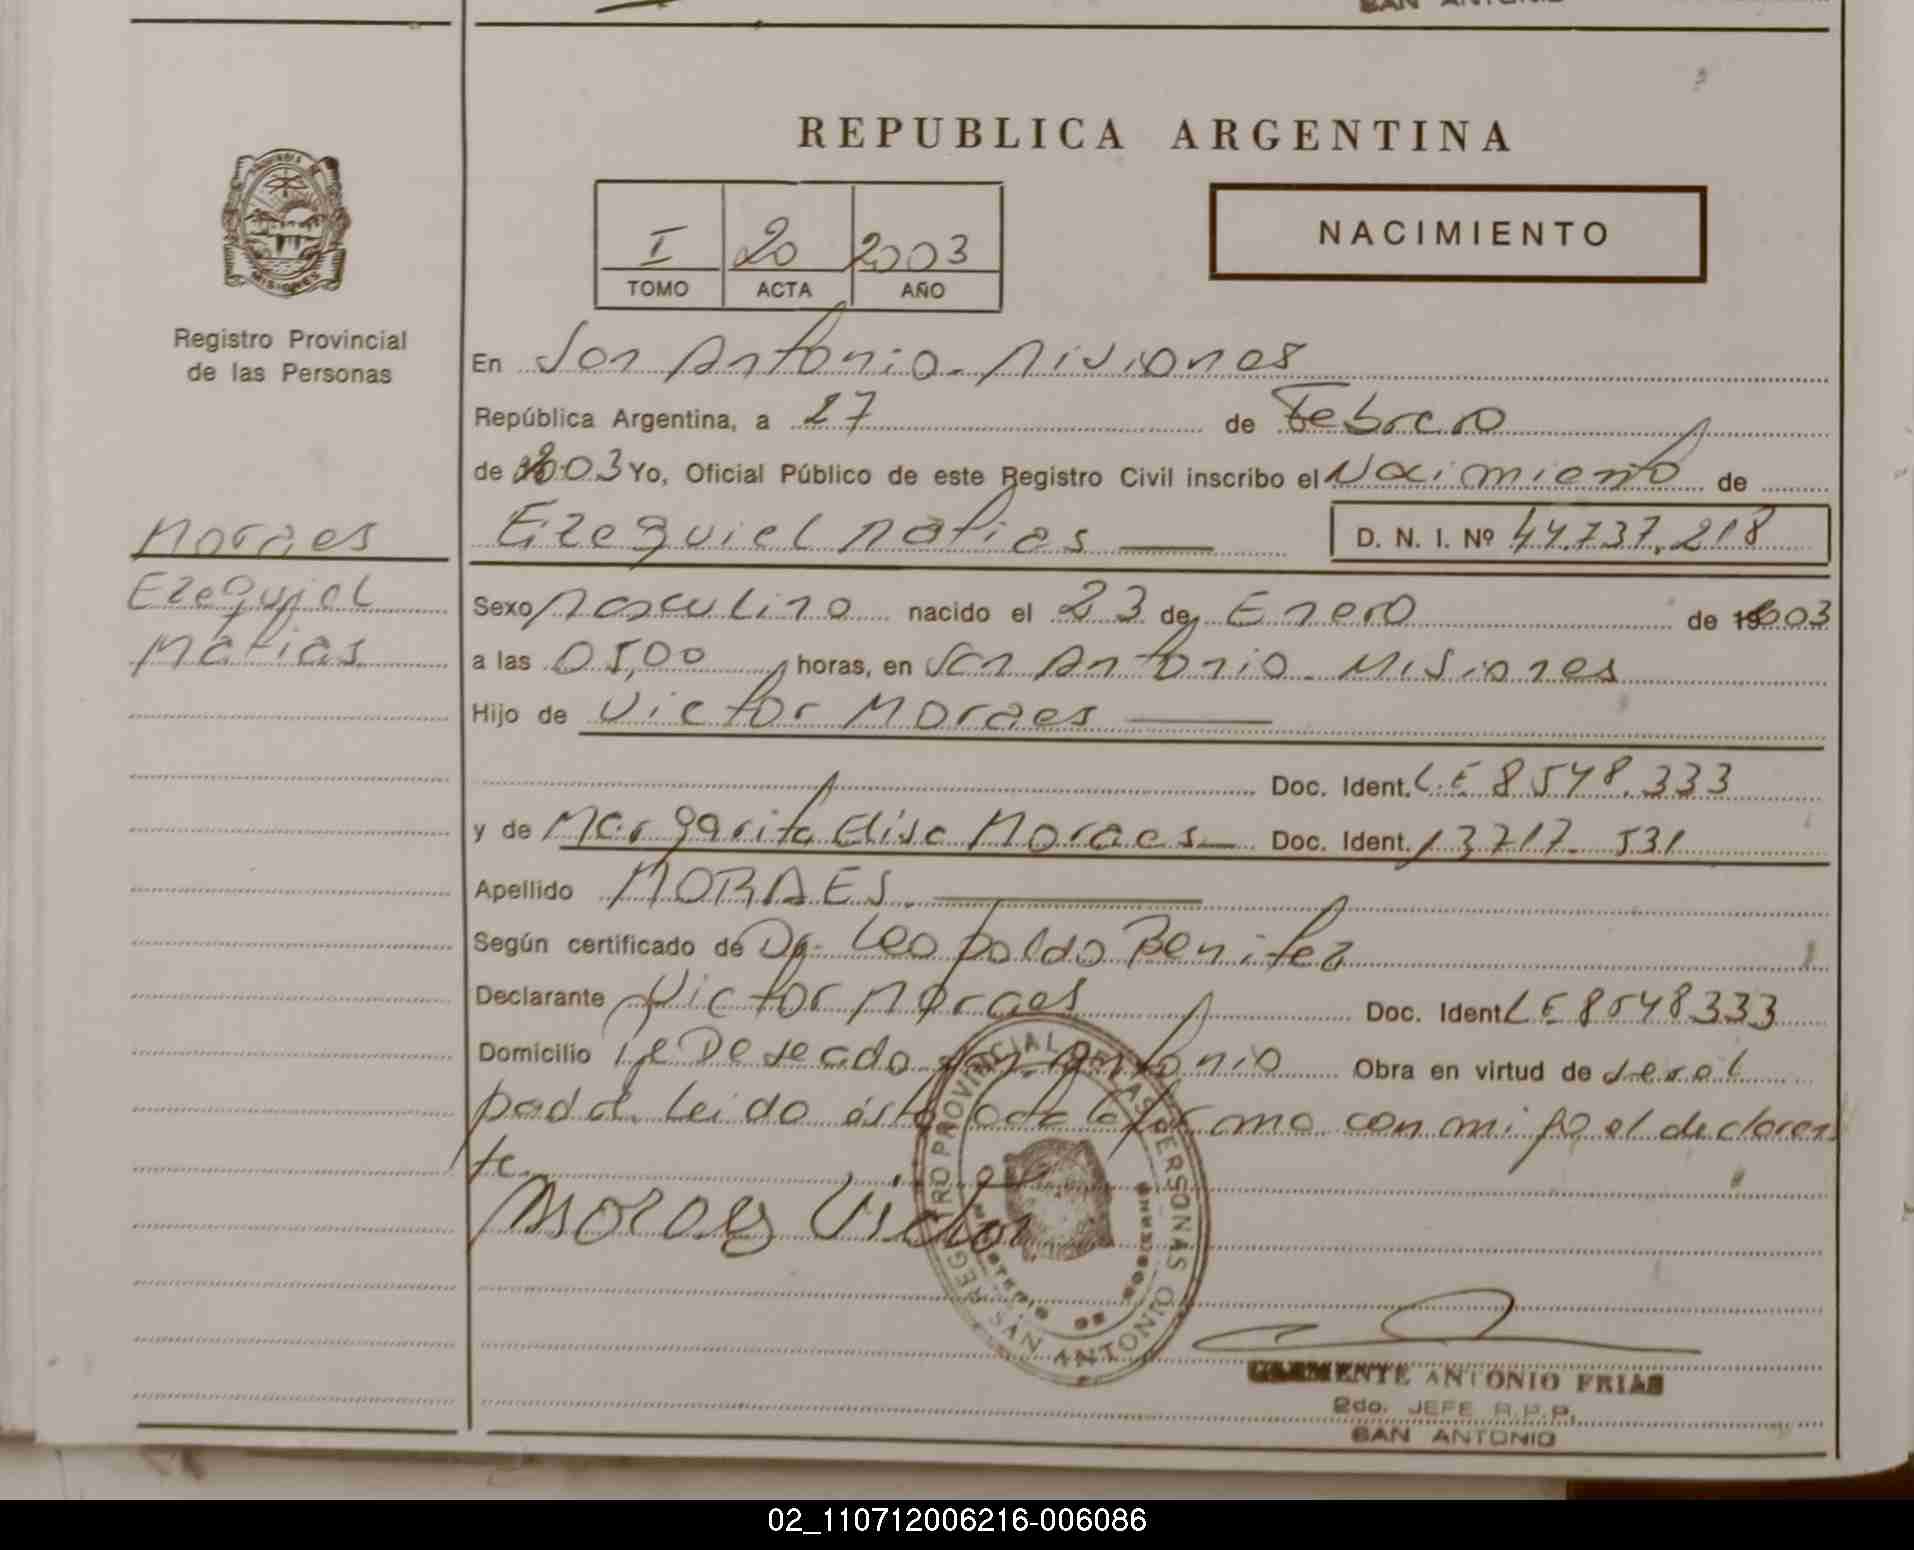 SAN ANTONIO
REPUBLICA ARGENTINA
PROVINCIA DE
MISIONES
Registro Provincial
de las Personas
I 20 2003
TOMO ACTA AÑO
NACIMIENTO
En San Antonio - Misiones
República Argentina, a 27 de Febrero
de 2003 Yo, Oficial Público de este Registro Civil inscribo el Nacimiento de
Moraes
Ezequiel Matias
Ezequiel Matias D. N. I. Nº 44.737.218
Sexo Masculino nacido el 23 de Enero de 2003
a las 05,00 horas, en San Antonio - Misiones
Hijo de Victor Moraes
Doc. Ident. L.E 8548.333
y de Margarita Elisa Moraes Doc. Ident. 13717.531
Apellido MORAES.
Según certificado de Dr. Leopoldo Benitez
Declarante Victor Moraes Doc. Ident LE 8548333
Domicilio Deseado San Antonio Obra en virtud de ser el
padre. Leido ésta acta la firma con migo el declaran
te.
Moraes Victor
REGISTRO PROVINCIAL DE LAS PERSONAS
SAN ANTONIO
ANTONIO FRIAS
2do. JEFE R.P.P.
SAN ANTONIO
02_110712006216-006086